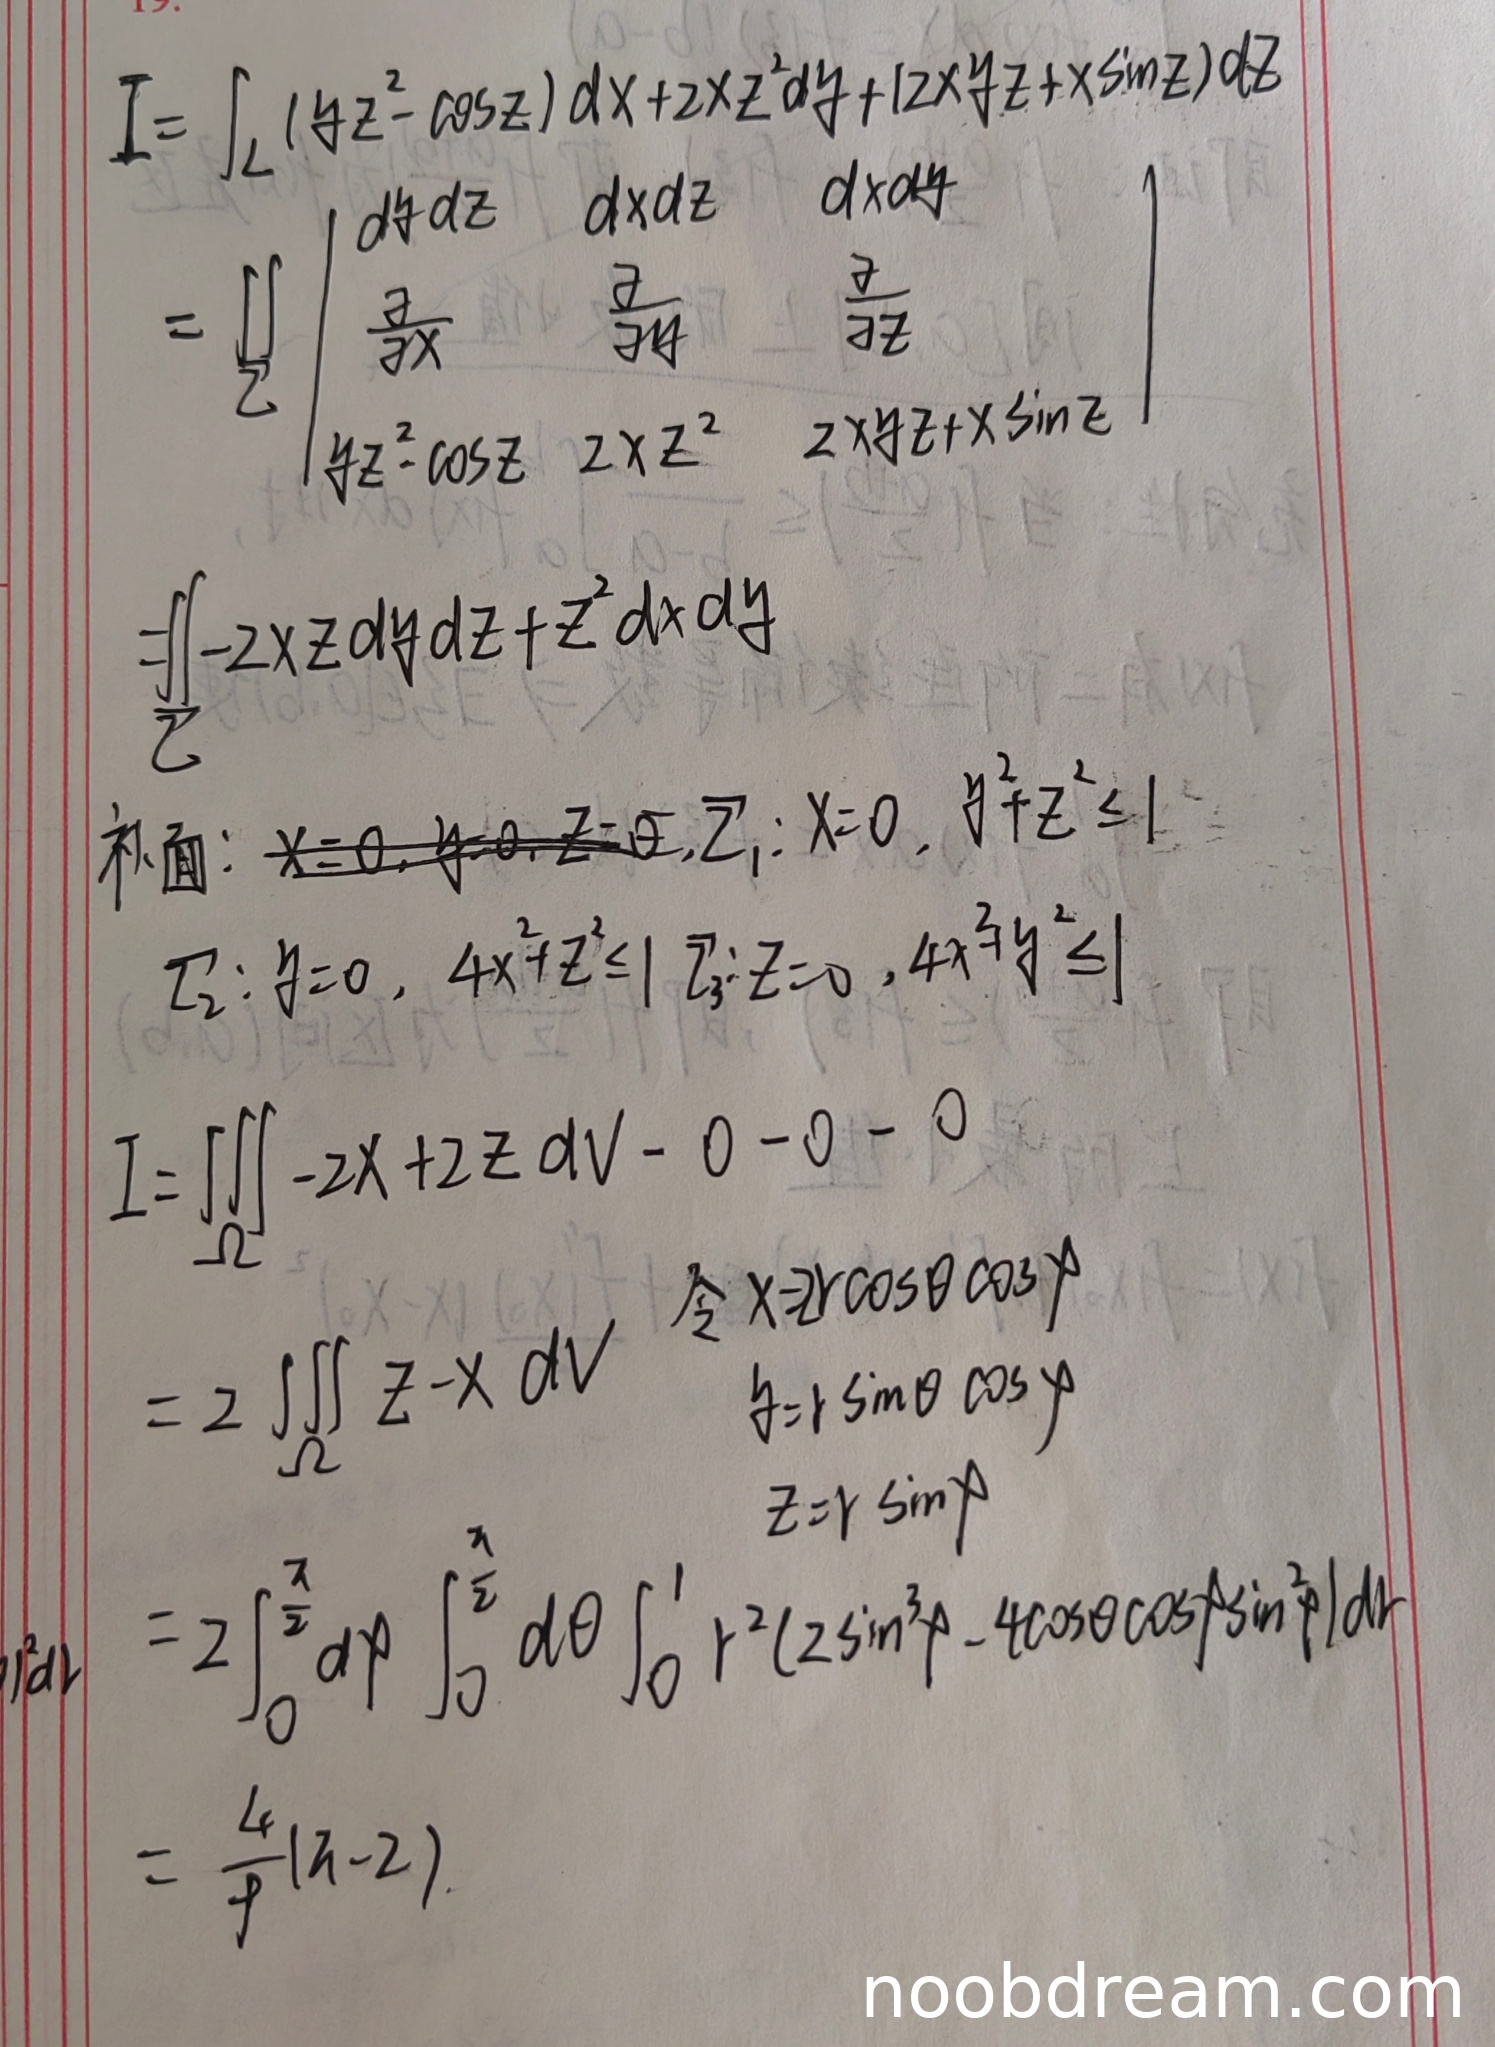 19.
I = ∫_L (yz² - cosz) dx + 2xz²dy + (2xyz + xsinz) dz
= ∬_Σ | dydz dxdz dxdy |
| ∂/∂x ∂/∂y ∂/∂z |
| yz² - cosz 2xz² 2xyz + xsinz |
= ∬_Σ -2xzdydz + z²dxdy
补面: x=0, y=0, z=0, Σ₁: x=0, y²+z² ≤ 1
Σ₂: y=0, 4x²+z² ≤ 1 Σ₃: z=0, 4x²+y² ≤ 1
I = ∭_Ω -2x+2z dV - 0 - 0 - 0
令 x=2rcosθcosφ
= 2∭_Ω z-x dV
y=rsinθcosφ
z=rsinφ
= 2∫_0^{π/2} dφ ∫_0^{π/2} dθ ∫_0^1 r²(2sin³φ - 4cosθcosφsin²φ)dr
r²dr
= 4/9 (π-2).
noobdream.com